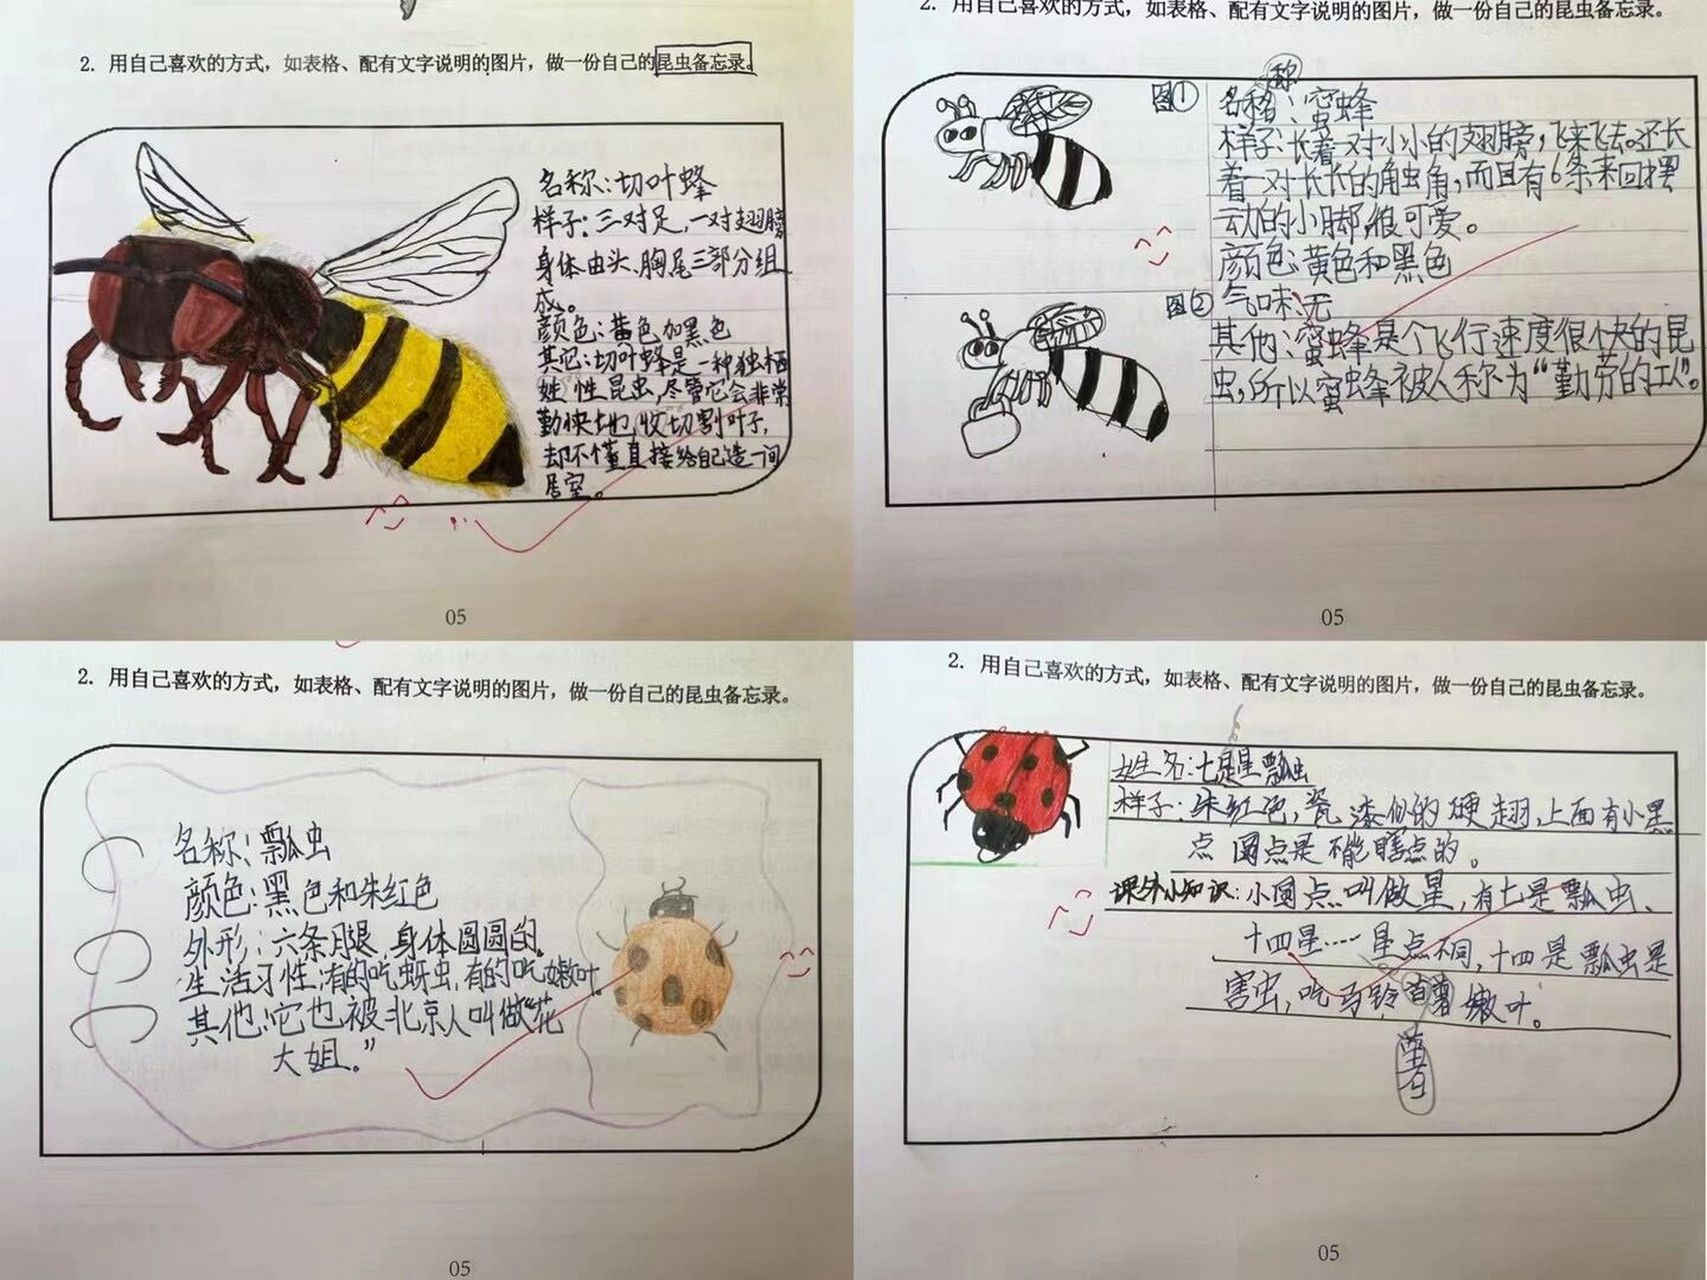 2. 用自己喜欢的方式，如表格、配有文字说明的图片，做一份自己的昆虫备忘录。
名称：切叶蜂
样子：三对足，一对翅膀
身体由头、胸尾三部分组
成。
颜色：黄色加黑色
其它：切叶蜂是一种独栖
性昆虫，尽管它会非常
勤快地收切割叶子，
却不懂直接给自己造一间
居室。
05
2. 用自己喜欢的方式，如表格、配有文字说明的图片，做一份自己的昆虫备忘录。
称
图①
名称：蜜蜂
样子：长着一对小小的翅膀，飞来飞去。还长
着一对长长的触角，而且有6条来回摆
动的小脚很可爱。
颜色：黄色和黑色
图②
气味：无
其他：蜜蜂是个飞行速度很快的昆
虫，所以蜜蜂被人称为“勤劳的工人”。
05
2. 用自己喜欢的方式，如表格、配有文字说明的图片，做一份自己的昆虫备忘录。
名称：瓢虫
颜色：黑色和朱红色
外形：六条腿，身体圆圆的。
生活习性：有的吃蚜虫，有的吃嫩叶。
其他：它也被北京人叫做“花
大姐。”
05
2. 用自己喜欢的方式，如表格、配有文字说明的图片，做一份自己的昆虫备忘录。
姓名：七星瓢虫
样子：朱红色，瓷漆似的硬翅，上面有小黑
点 圆点是不能瞎点的。
课外小知识：小圆点叫做星，有七是瓢虫、
十四星……星点不同，十四是瓢虫是
害虫，吃马铃薯嫩叶。
薯
05